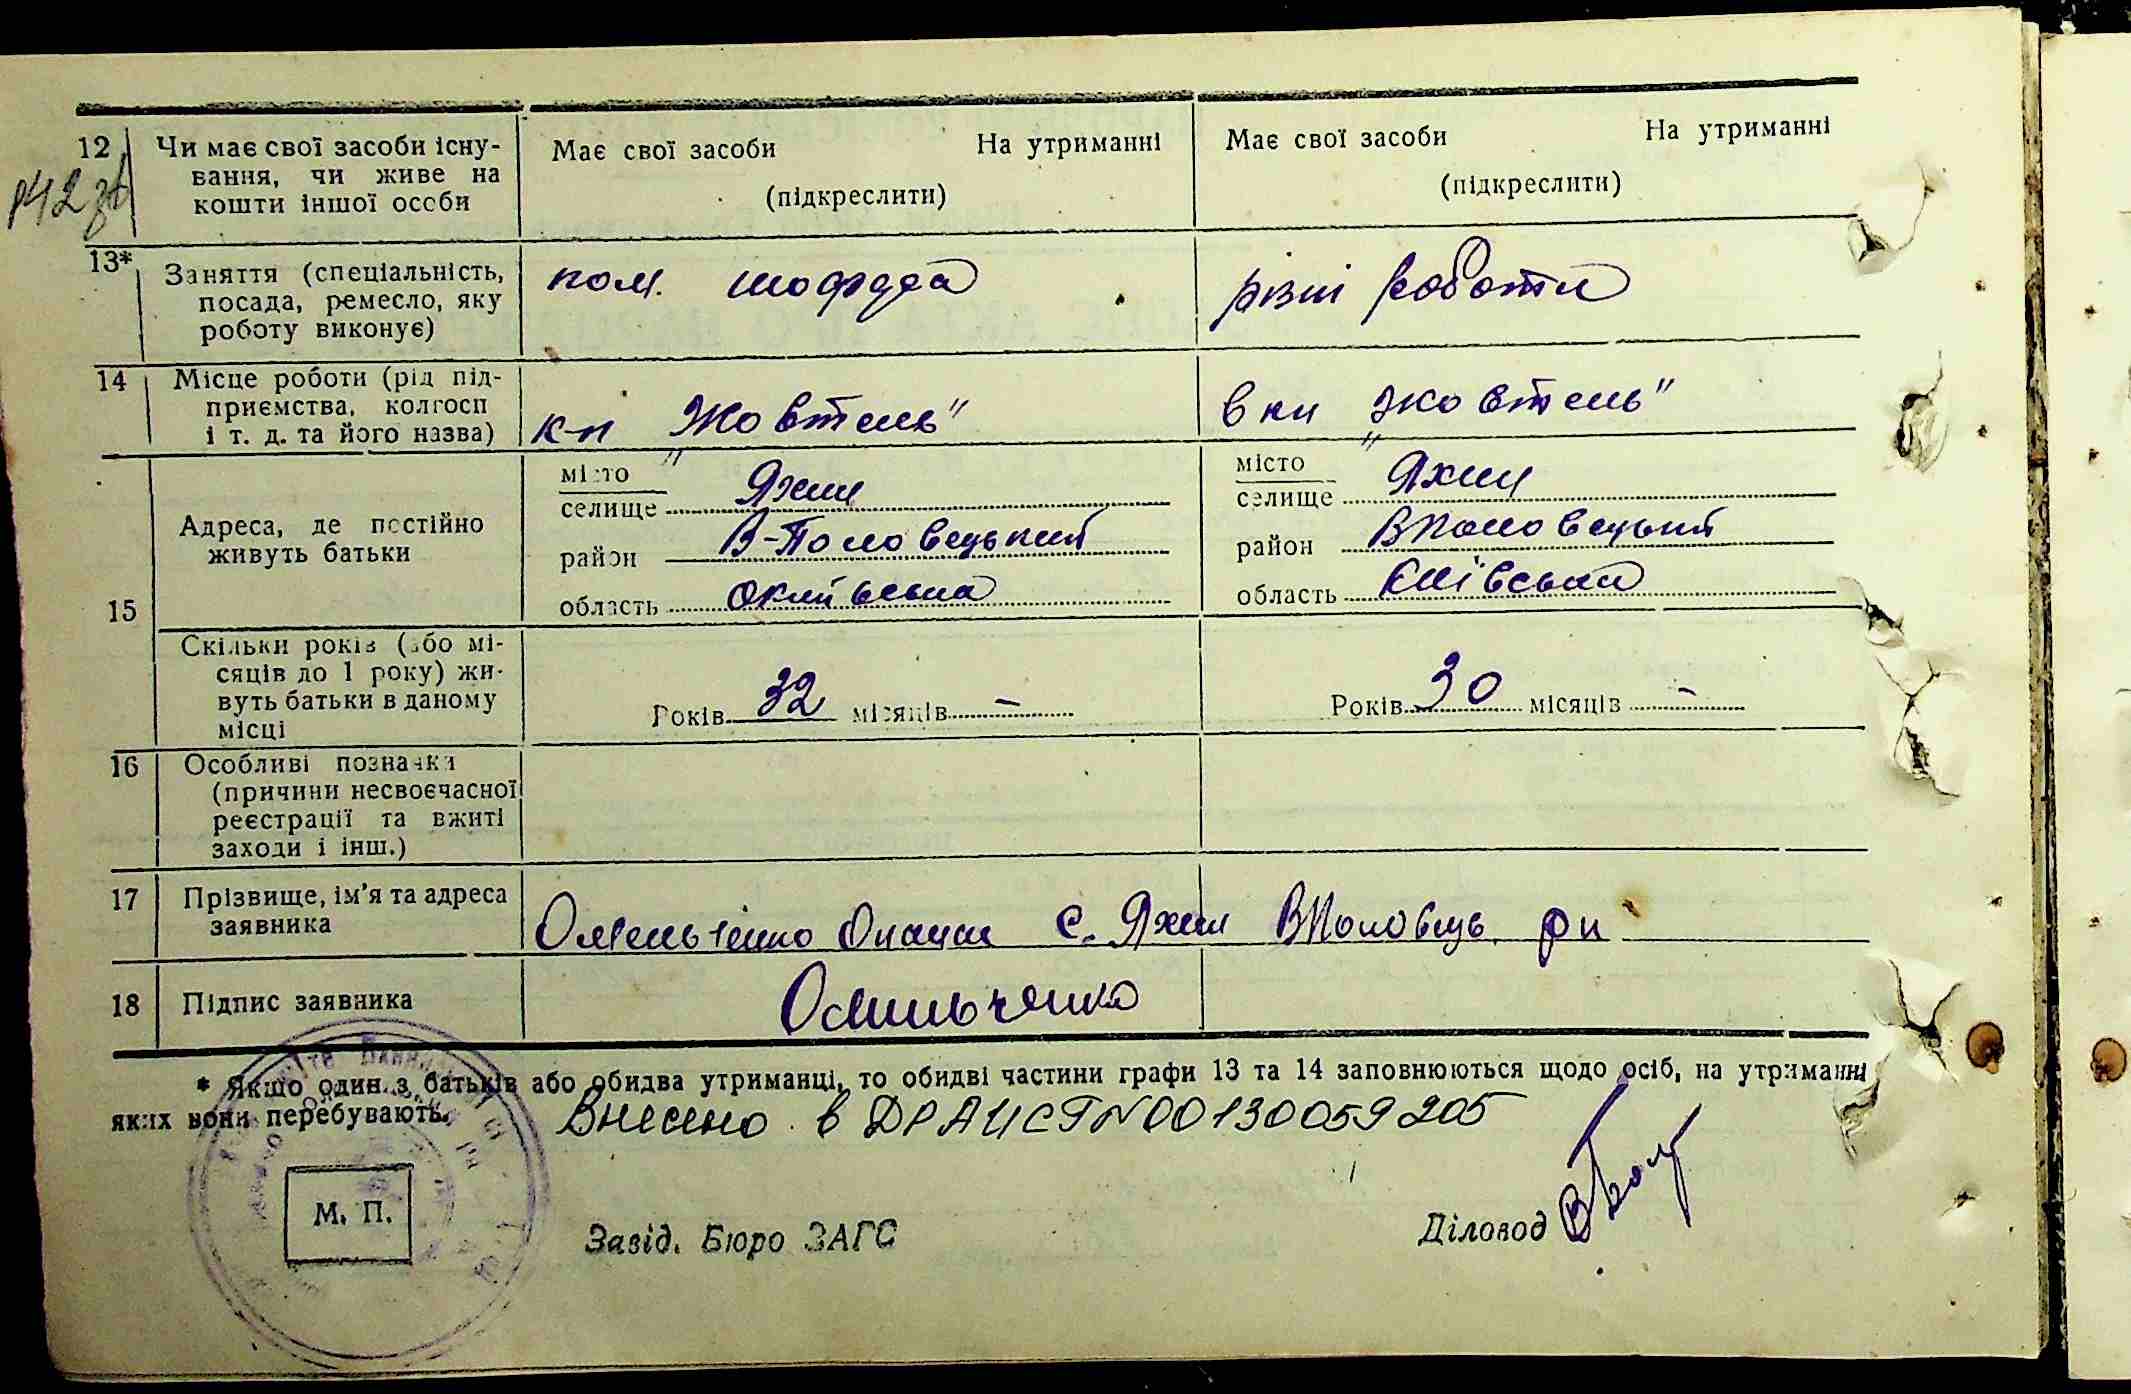 12 Чи має свої засоби існу- Має свої засоби На утриманні Має свої засоби На утриманні
вання, чи живе на
кошти іншої особи (підкреслити) (підкреслити)
13* Заняття (спеціальність, пом. шофера різні роботи
посада, ремесло, яку
роботу виконує)
14 Місце роботи (рід під-
приємства, колгосп к-п "Жовтень" в кп "Жовтень"
і т. д. та його назва)
15 Адреса, де постійно
живуть батьки
місто місто
селище Яхни селище Яхни
район В-Половецький район ВПоловецький
область Київська область Київська
Скільки років (або мі-
сяців до 1 року) жи-
вуть батьки в даному Років 32 місяців – Років 30 місяців –
місці
16 Особливі позначки
(причини несвоєчасної
реєстрації та вжиті
заходи і інш.)
17 Прізвище, ім'я та адреса
заявника Омельченко с. Яхни ВПоловець. рн
18 Підпис заявника Омельченко
* Якщо один з батьків або обидва утриманці, то обидві частини графи 13 та 14 заповнюються щодо осіб, на утриманні
яких вони перебувають.
Внесено в ДРАЦСГ N00130059205
М. П.
Завід. Бюро ЗАГС Діловод